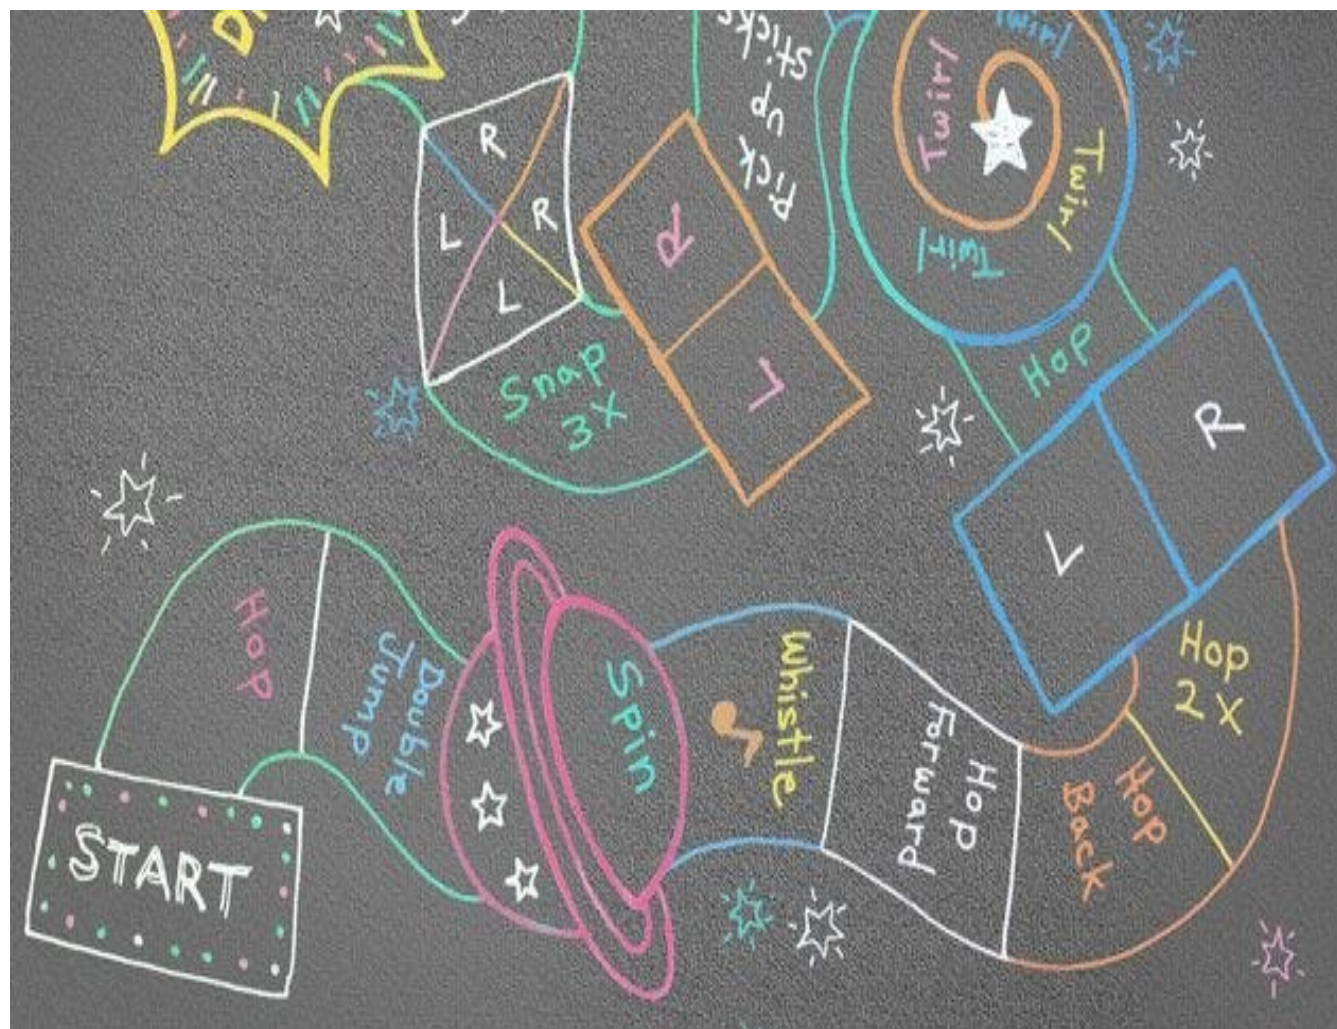 START
Hop
Double
Jump
Spin
Whistle
Hop
Forward
Hop
Back
Hop
2 X
L
R
Hop
Twirl
Twirl
Twirl
Twirl
Pick
up
sticks
L
R
Snap
3 X
L
R
L
R